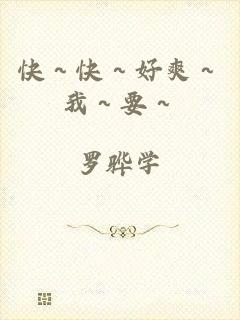 快～快～好爽～
我～要～
罗骅学